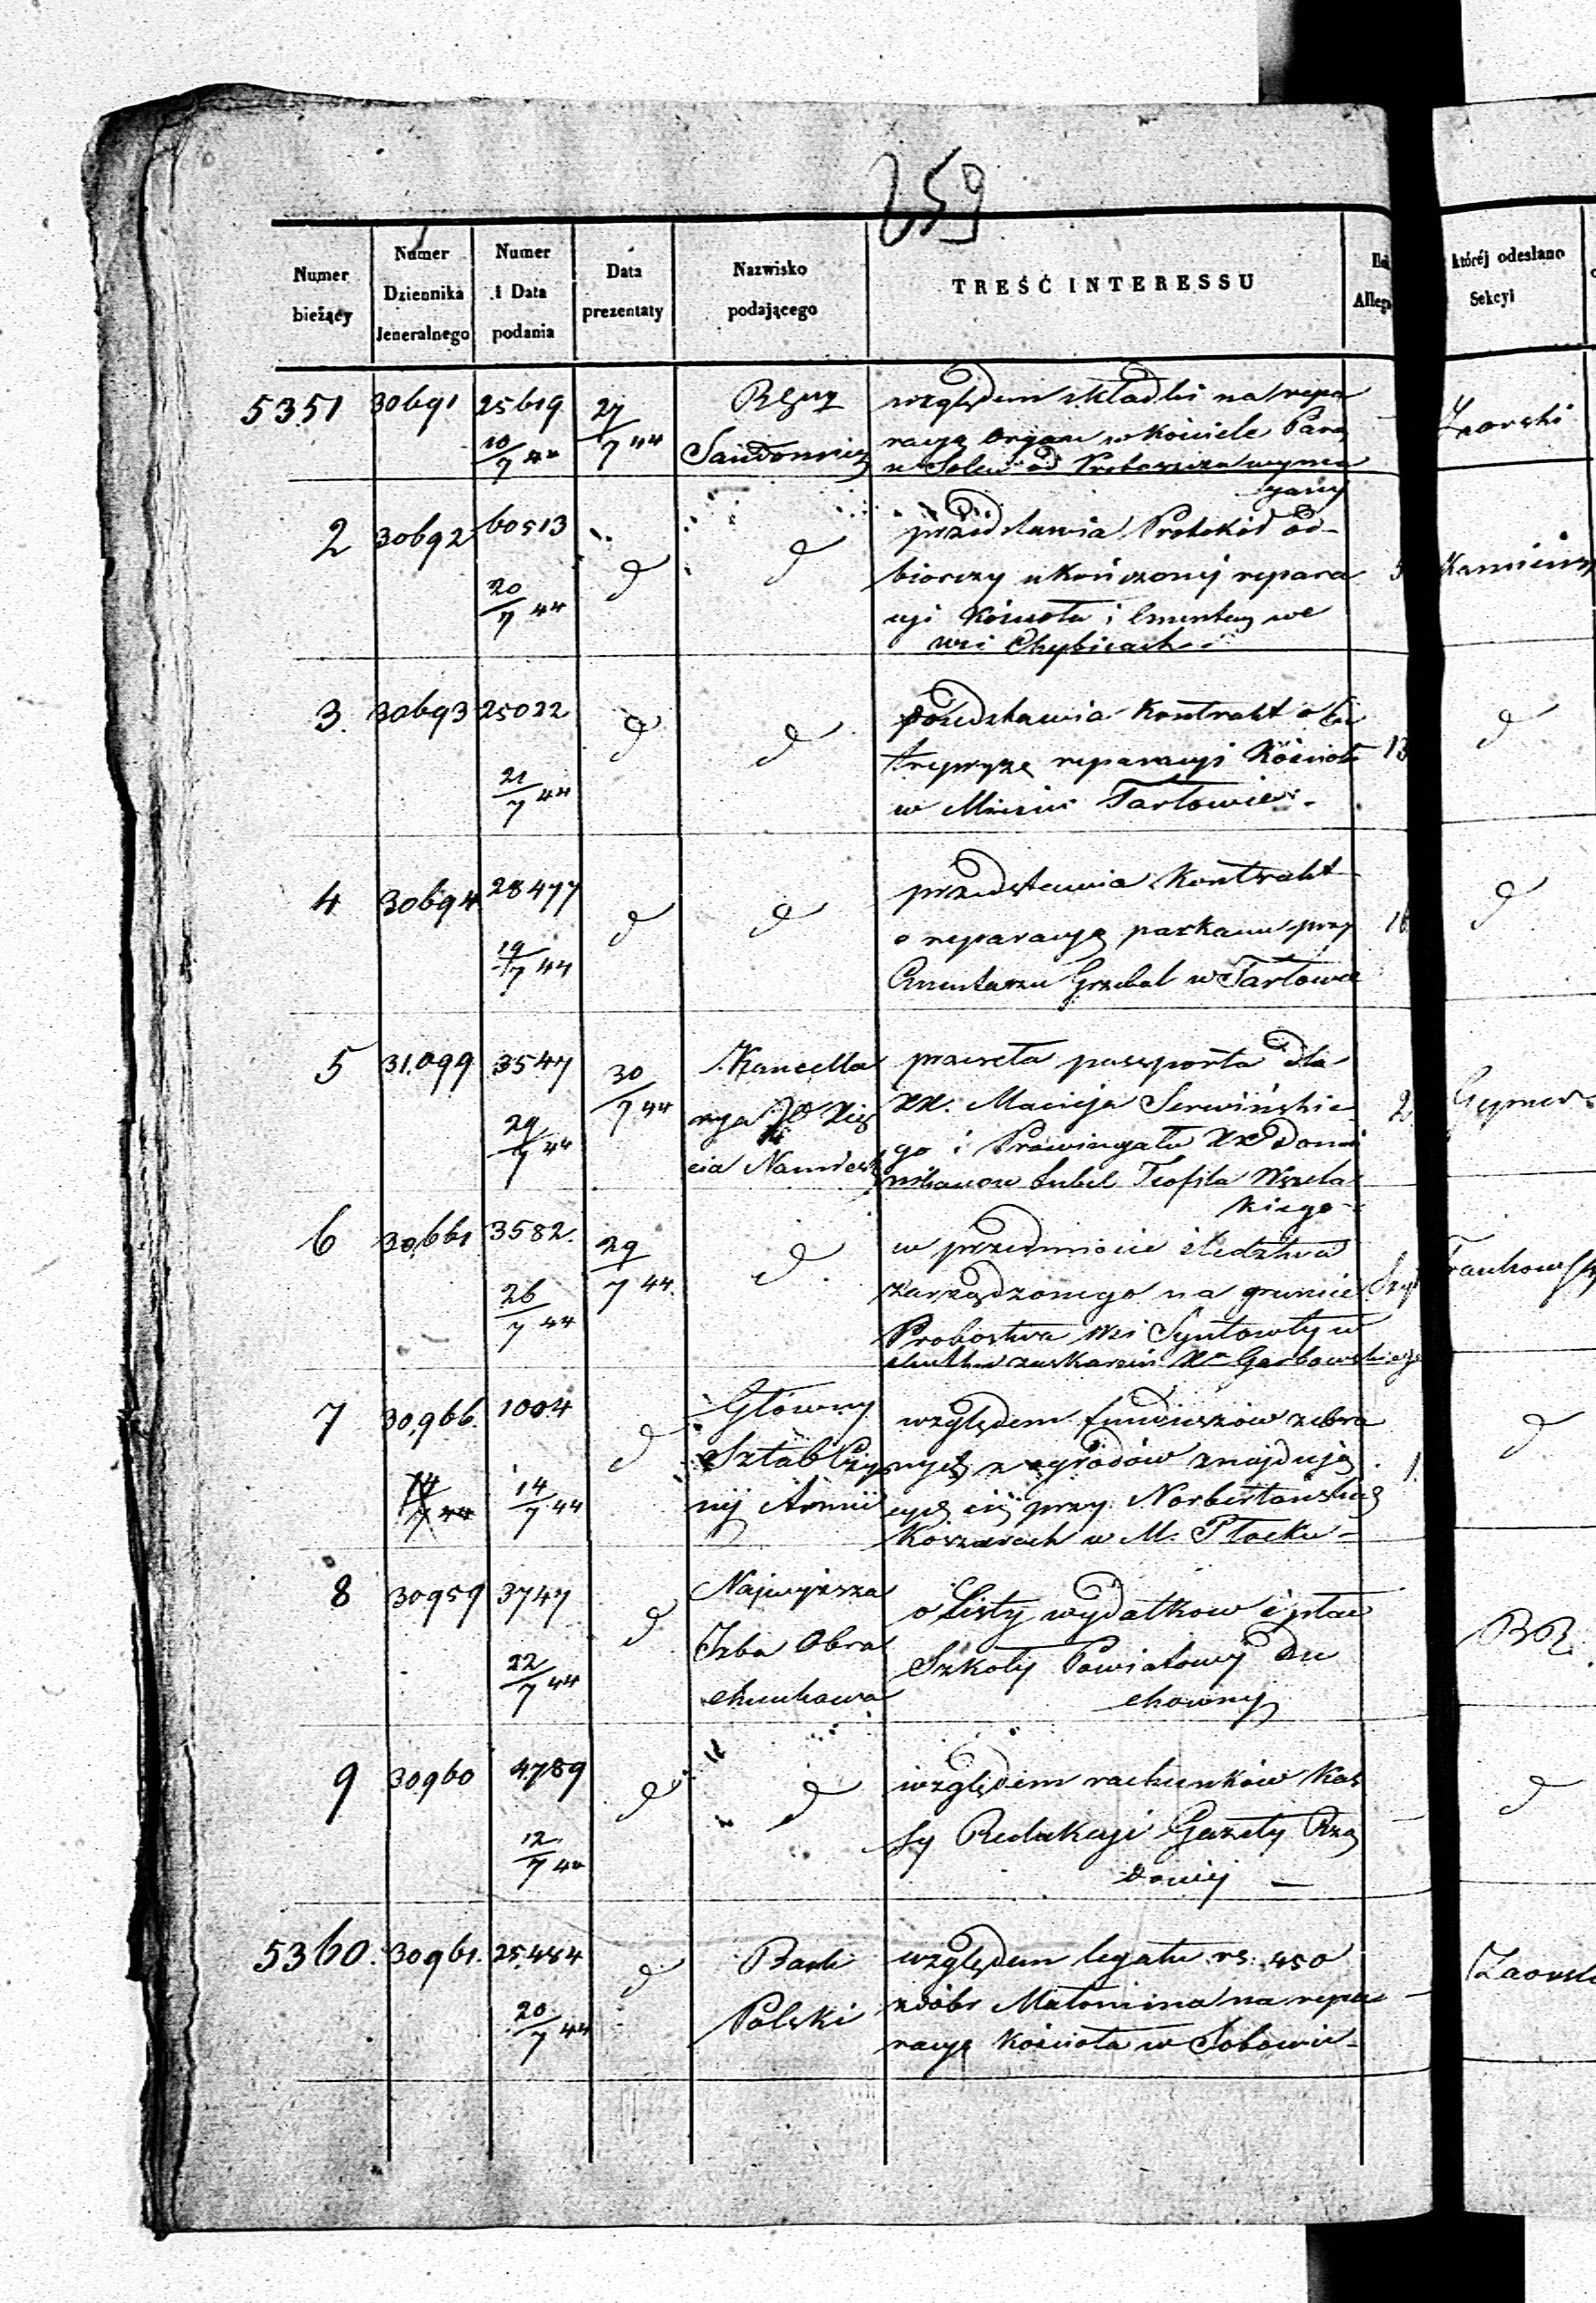 259
Numer bieżący
Numer Dziennika Jeneralnego
Numer i Data podania
Data prezentaty
Nazwisko podającego
TREŚĆ INTERESSU
Alleg
której odesłano Sekcyi
5351 30691 25619 10/7 44 27/7 44
Sandomier
względem składki na repa
racyą organ w kościele Para
w Solcu od Proboszcza wyma
gany
Zaorski
2 30692 60513 20/7 44 d d
przedstawia Protokół od-
biorczy ukończonej repara
cyi kościoła i Cmentarz we
wsi Chybicach
5
3. 30693 25022 21/7 44 d d
przedstawia kontrakt o En
trepryzę reparacyi Kościoła
w Mieście Tarłowie.
13 d
4 30694 28477 19/7 44 d d
przedstawia kontrakt
o reparacyą parkanu przy
Cmentarzu Grzebal w Tarłowie
16 d
5 31.099 3547 29/7 44 30/7 44
Kancella
rya JO Xię
cia Namiest
przesyła passporta dla
XX. Macieja Serwińskie
go i Prowincyała XX Domi
nikanow Lubel Teofila Wszela
kiego
2
6 30,661 3582. 26/7 44 29/7 44. d.
w przedmiocie śledztwa
zarządzonego na gruncie
Probostwa wsi Syntowty w
skutku zaskarżeń Xa Garbowskiego
7 30,966. 14/7 44 1004 14/7 44 d
Główny
Sztab Czyn
nej Armii
względem funduszów zebra
nych z ogrodów znajdują
cych się przy Norbertańskich
Koszarach w M. Płocku-
1. d
8 30959 3747 22/7 44 d
Najwyższa
Izba Obra
chunkowa
o Listy wydatkow i płac
Szkoły Powiatowej Du
chownej
BR.
9 30960 4789 12/7 44 d d
względem rachunków Kas
sy Redakcyi Gazety Rzą
dowej
d
5360. 30961. 25,484 20/7 44 d
Bank
Polski
względem legatu rs. 450
z dóbr Małonina na repa
racyą kościoła w Sobowie-
Zaorski